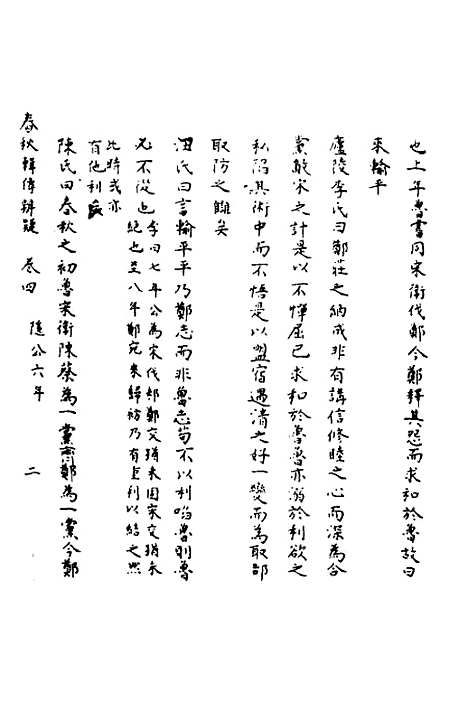 也上年魯書同宋衛伐鄭今鄭釋其怨而求和於魯故曰
來輸平
廬陵李氏曰鄭莊之納成非有講信修睦之心而深為合
黨敵宋之計是以不憚屈己求和於魯魯亦溺於利欲之
私陷其術中而不悟是以盟宿遇清之好一變而為取郜
取防之雠矣
汪氏曰言輸平平乃鄭志而非魯志苟不以利啗魯則魯
必不從也李曰七年公為宋伐邾鄭交猶未固宋交猶未
絕也至八年鄭宛來歸祊乃有重利以結之然
比時或亦
有他利
陳氏曰春秋之初魯宋衛陳蔡為一黨齊鄭為一黨今鄭
春秋輯傳辨疑 卷四 隱公六年 二